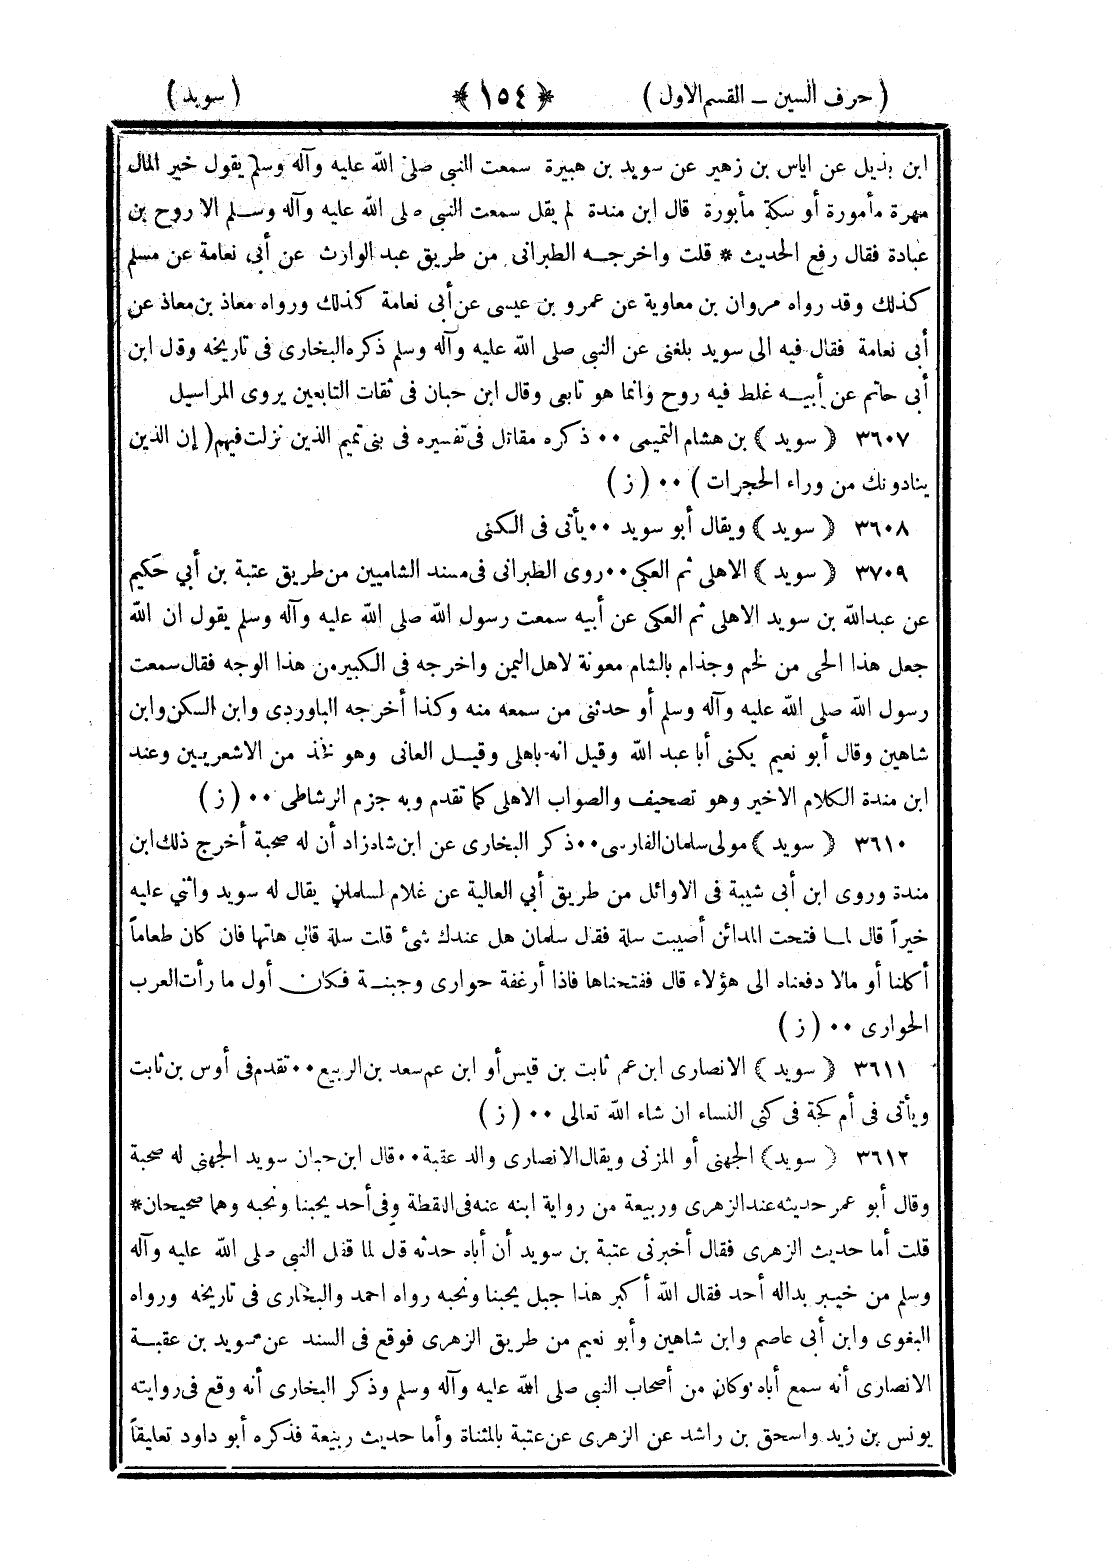 ( حرف السين – القسم الاول ) ﴿ ١٥٤ ﴾ ( سويد )
ابن بذيل عن اياس بن زهير عن سويد بن هبيرة سمعت النبى صلى الله عليه وآله وسلم يقول خير المال
مهرة مأمورة أو سكة مأبورة قال ابن مندة لم يقل سمعت النبى صلى الله عليه وآله وسلم الا روح بن
عبادة فقال رفع الحديث * قلت واخرجه الطبرانى من طريق عبد الوارث عن أبى نعامة عن مسلم
كذلك وقد رواه مروان بن معاوية عن عمرو بن عيسى عن أبى نعامة كذلك ورواه معاذ بن معاذ عن
أبى نعامة فقال فيه الى سويد بلغنى عن النبى صلى الله عليه وآله وسلم ذكره البخارى فى تاريخه وقل ابن
أبى حاتم عن أبيه غلط فيه روح وانما هو تابعى وقال ابن حبان فى ثقات التابعين يروى المراسيل
٣٦٠٧ ﴿ سويد ﴾ بن هشام التميمى ٠٠ ذكره مقاتل فى تفسيره فى بنى تميم الذين نزلت فيهم ( إن الذين
ينادونك من وراء الحجرات ) ٠٠ ( ز )
٣٦٠٨ ﴿ سويد ﴾ ويقال أبو سويد ٠٠ يأتى فى الكنى
٣٧٠٩ ﴿ سويد ﴾ الاهلى ثم العكى ٠٠ روى الطبرانى فى مسند الشاميين من طريق عتبة بن أبي حَكيم
عن عبدالله بن سويد الاهلى ثم العكى عن أبيه سمعت رسول الله صلى الله عليه وآله وسلم يقول ان الله
جعل هذا الحى من لخم وجذام بالشام معونة لاهل اليمن واخرجه فى الكبير من هذا الوجه فقال سمعت
رسول الله صلى الله عليه وآله وسلم أو حدثنى من سمعه منه وكذا أخرجه الباوردى وابن السكن وابن
شاهين وقال أبو نعيم يكنى أبا عبد الله وقيل انه باهلى وقيل العانى وهو فخذ من الاشعريين وعند
ابن مندة الكلام الاخير وهو تصحيف والصواب الاهلى كما تقدم وبه جزم الرشاطى ٠٠ ( ز )
٣٦١٠ ﴿ سويد ﴾ مولى سلمان الفارسى ٠٠ ذكر البخارى عن ابن شاذزاد أن له صحبة أخرج ذلك ابن
مندة وروى ابن أبى شيبة فى الاوائل من طريق أبي العالية عن غلام لسلمان يقال له سويد واثني عليه
خيراً قال لما فتحت المدائن أصيبت سلة فقل سلمان هل عندك شئ قلت سلة قال هاتها فان كان طعاماً
أكلنا أو مالا دفعناه الى هؤلاء قال ففتحناها فاذا أرغفة حوارى وجبنة فكان أول ما رأت العرب
الحوارى ٠٠ ( ز )
٣٦١١ ﴿ سويد ﴾ الانصارى ابن عم ثابت بن قيس أو ابن عم سعد بن الربيع ٠٠ تقدم فى أوس بن ثابت
ويأتى فى أم كجة فى كني النساء ان شاء الله تعالى ٠٠ ( ز )
٣٦١٢ ﴿ سويد ﴾ الجهنى أو المزنى ويقال الانصارى والد عقبة ٠٠ قال ابن حبان سويد الجهنى له صحبة
وقال أبو عمر حديثه عند الزهرى وربيعة من رواية ابنه عنه فى اللقطة وفى أحد يحبنا ونحبه وهما صحيحان *
قلت أما حديث الزهرى فقال أخبرنى عتبة بن سويد أن أباه حدثه قل لما قفل النبى صلى الله عليه وآله
وسلم من خيبر بداله أحد فقال الله أكبر هذا جبل يحبنا ونحبه رواه احمد والبخارى فى تاريخه ورواه
البغوى وابن أبى عاصم وابن شاهين وأبو نعيم من طريق الزهرى فوقع فى السند عن سويد بن عقبة
الانصارى أنه سمع أباه وكان من أصحاب النبى صلى الله عليه وآله وسلم وذكر البخارى أنه وقع فى روايته
يونس بن زيد واسحق بن راشد عن الزهرى عن عتبة بالمثناة وأما حديث ربيعة فذكره أبو داود تعليقاً